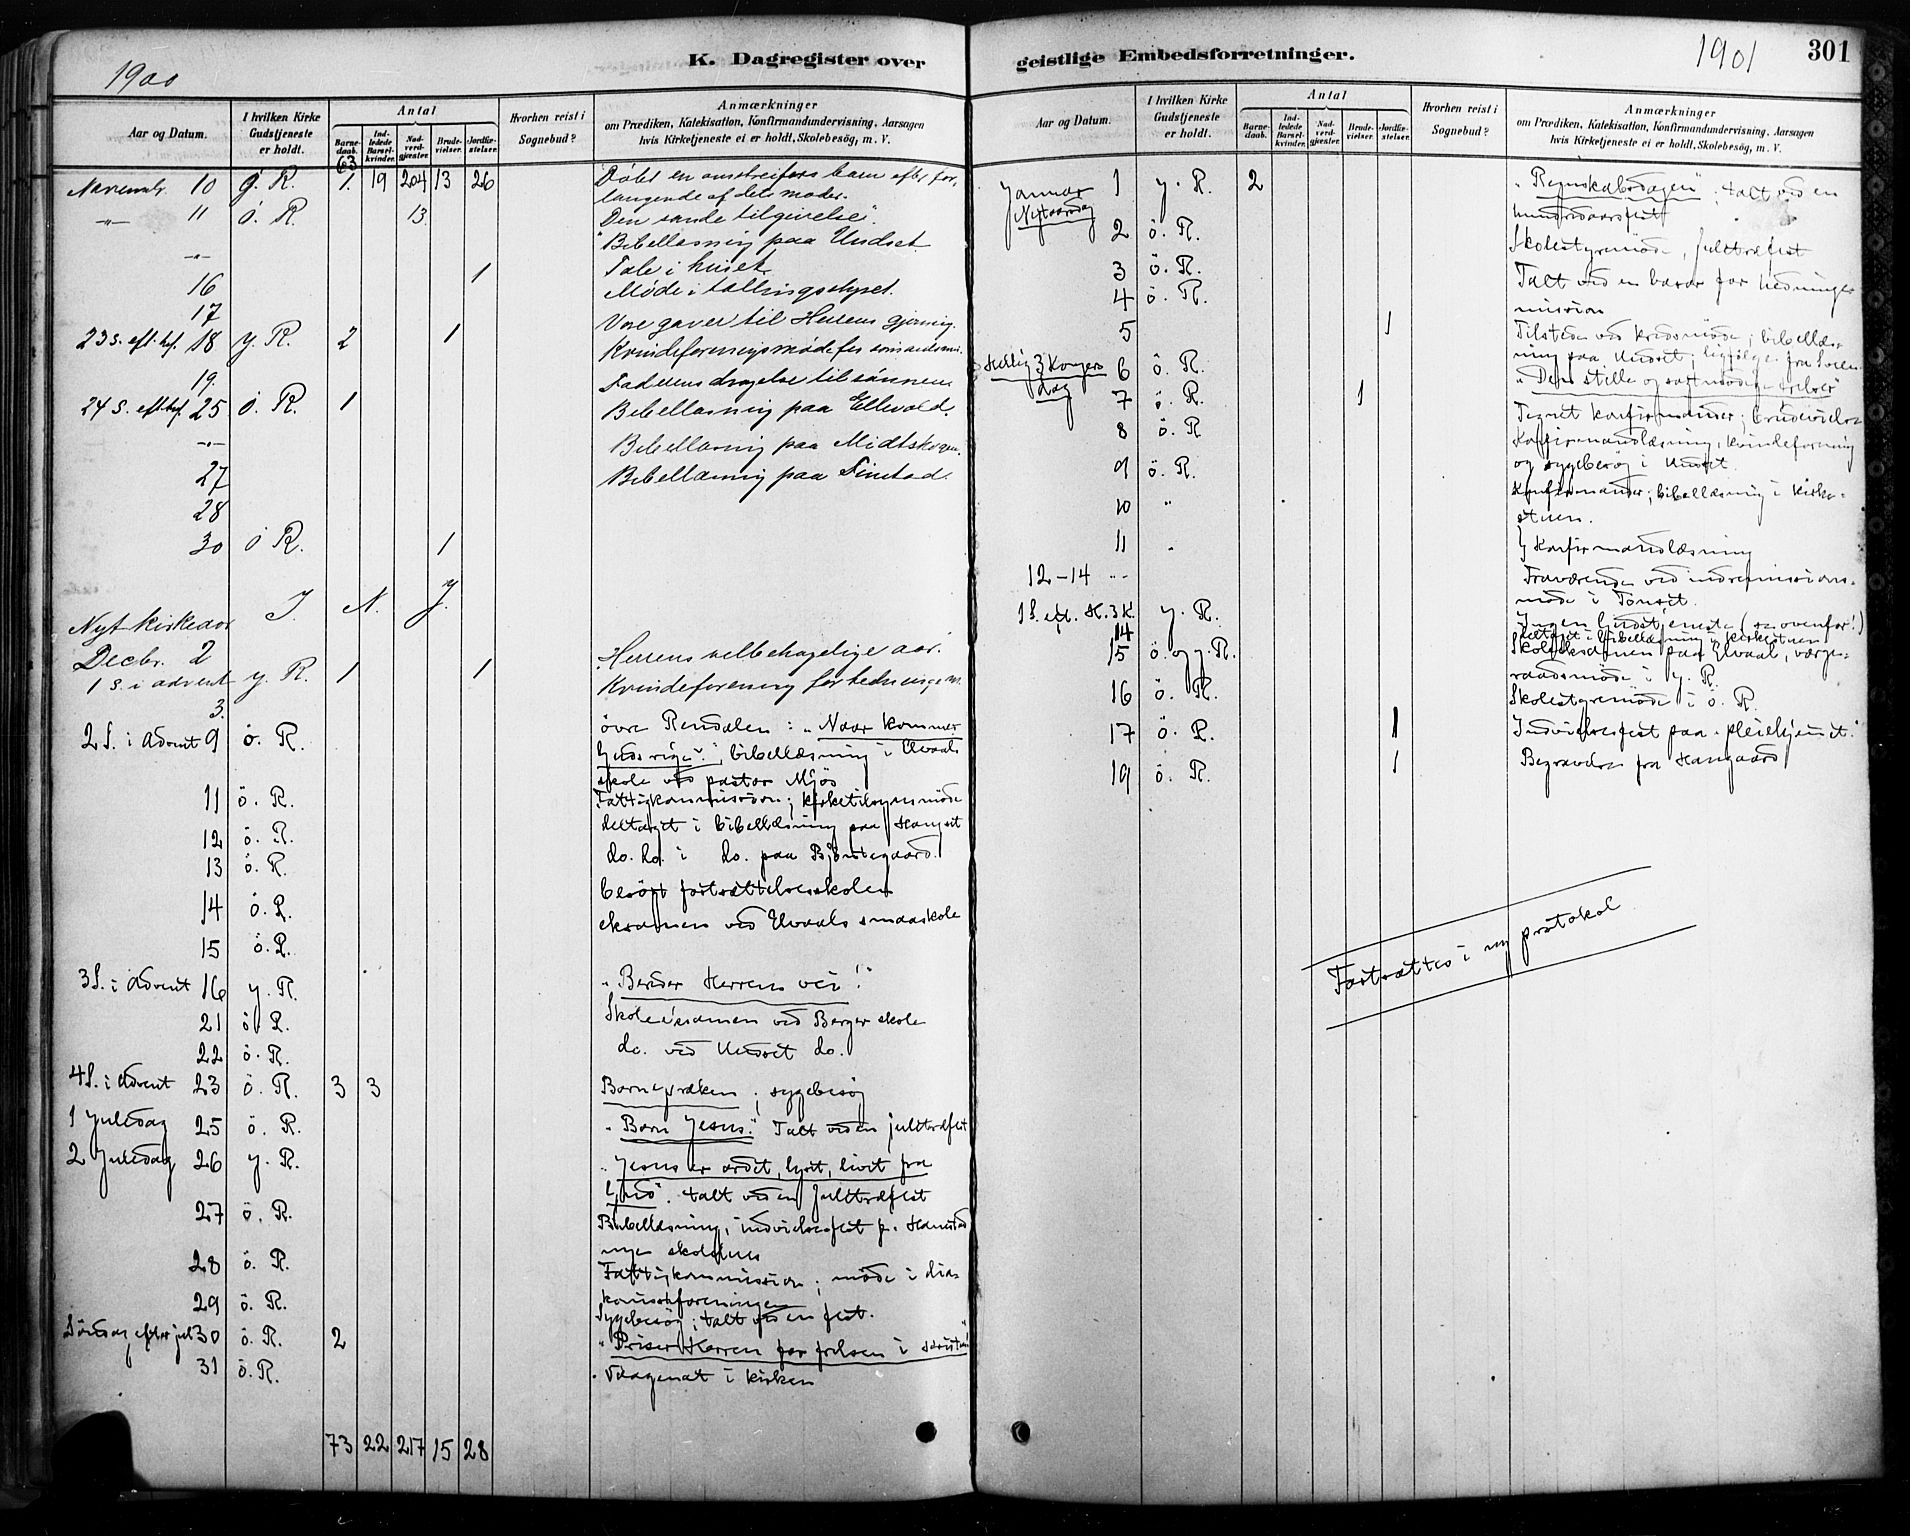 1900
K. Dagregister over
Aar og Datum.
I hvilken Kirke Gudstjeneste er holdt.
Antal
Barne-daab.
Ind-ledede Barsel-kvinder.
Nad-verd-gjester.
Brude-vielser.
Jordfæ-stelser.
Hvorhen reist i Sognebud?
Anmærkninger
om Prædiken, Katekisation, Konfirmandundervisning, Aarsagen
hvis Kirketjeneste ei er holdt, Skolebesøg, m. V.
63
Novembr. 10 y. R. 1. 19 204 13 26 Døbt en omstreifers barn efter for-
langende af dets moder.
—"— 11 ö. R. 13. Den sande tilgivelse".
—"— Bibellæsning paa Undset
16 1 Tale i huset
17 Møde i tællingsstyret.
23 S. eft. hf. 18 y. R. 2 1 Vore gaver til Herrens gjerning.
19. Kvindeforeningsmøde for
24 S. eft hf. 25 ö. R. 1 Faderens dragelse til sønnen
—"— Bibellæsning paa Ellevold.
27 Bibellæsning paa Midtskogen.
28 Bibellæsning paa Finstad.
30 ö R. 1
I. N. J.
Nyt kirkeaar
Decbr. 2
1 S. i advent y. R. 1 1 Herrens velbehagelige aar.
3. Kvindeforening for hedningem.
2 S. i advent 9 ö. R. övre Rendalen: „Naar kommer
Guds rige"; bibellæsning i Elvaals
skole ved pastor Mjös
11 ö. R. Fattigkommission; kirketilsynsmöde
12 ö. R. deltaget i bibellæsning paa Hangset
13 ö. R. do. do. i do. paa Björnsgaard.
14 ö. R. besögt fortsættelsesskolen
15 ö. R. eksamen ved Elvaals smaaskole
3 S. i advent 16 y. R. „Bereder Herrens vei!"
21 ö. R. Skoleeksamen ved Berger skole
22 ö. R. do. ved Undset do.
4 S. i advent 23 ö. R. 3 3 Barnepræken; sygebesög
1 juledag 25 ö. R. „Barn Jesus." Talt ved en juletræfest
2 juledag 26 y. R. „Jesus er ordet, lyset, livet fra
Gud". talt ved en juletræfest
27 ö. R. Bibellæsning, indvielsesfest p. Hanestad
nye skolehus
28 ö. R. Fattigkommission; möde i dia-
konissforeningen
29 ö. R. Sygebesög; talt ved en fest.
Söndag efter jul 30 ö. R. 2 „Priser Herren for frelsen i Kristus"
31 ö. R. Vaagenat i kirken
73 22 217 15 28
geistlige Embedsforretninger.
1901
301
Aar og Datum.
I hvilken Kirke Gudstjeneste er holdt.
Antal
Barne-daab.
Ind-ledede Barsel-kvinder.
Nad-verd-gjester.
Brude-vielser.
Jordfæ-stelser.
Hvorhen reist i Sognebud?
Anmærkninger
om Prædiken, Katekisation, Konfirmandundervisning, Aarsagen
hvis Kirketjeneste ei er holdt, Skolebesög, m. V.
Januar 1 y. R. 2 „Regnskabsdagen"; talt ved en
Nytaarsdag hundredaarsfest
2 ö. R. Skolestyremöde, juletræfest
3 ö. R. Talt ved en basar for hedninge-
4 ö. R. mission
5 1 Tilstede ved kredsmöde; bibellæs-
ning paa Undset; ligfölge fra
Hellig 3 Kongers dag 6 ö. R. „Den stille og sagtmodige
7 ö. R. 1 Tegnet konfirmander; brudevielse
8 ö. R Konfirmandlæsning, kvindeforening
9 ö. R. og sygebesög i Undset.
10 " Konfirmander; bibellæsning i kirke-
stuen.
11 " Konfirmandlæsning
12–14 — Fraværende ved indremissions-
möde i Tönset.
1 S. eft. H. 3 K. 14 y. R. Ingen gudstjeneste (se ovenfor!)
deltaget i bibellæsning i kirkestuen
15 ö. og y. R. Skoleeksamen paa Elvaal, værge-
raadsmöde i y. R.
16 ö. R. Skolestyremöde i ö. R.
17 ö. R. 1 Indvielsesfest paa „pleiehjemmet."
19 ö. R. 1 Begravelse fra Haugaard
Fortsættes i ny protokol